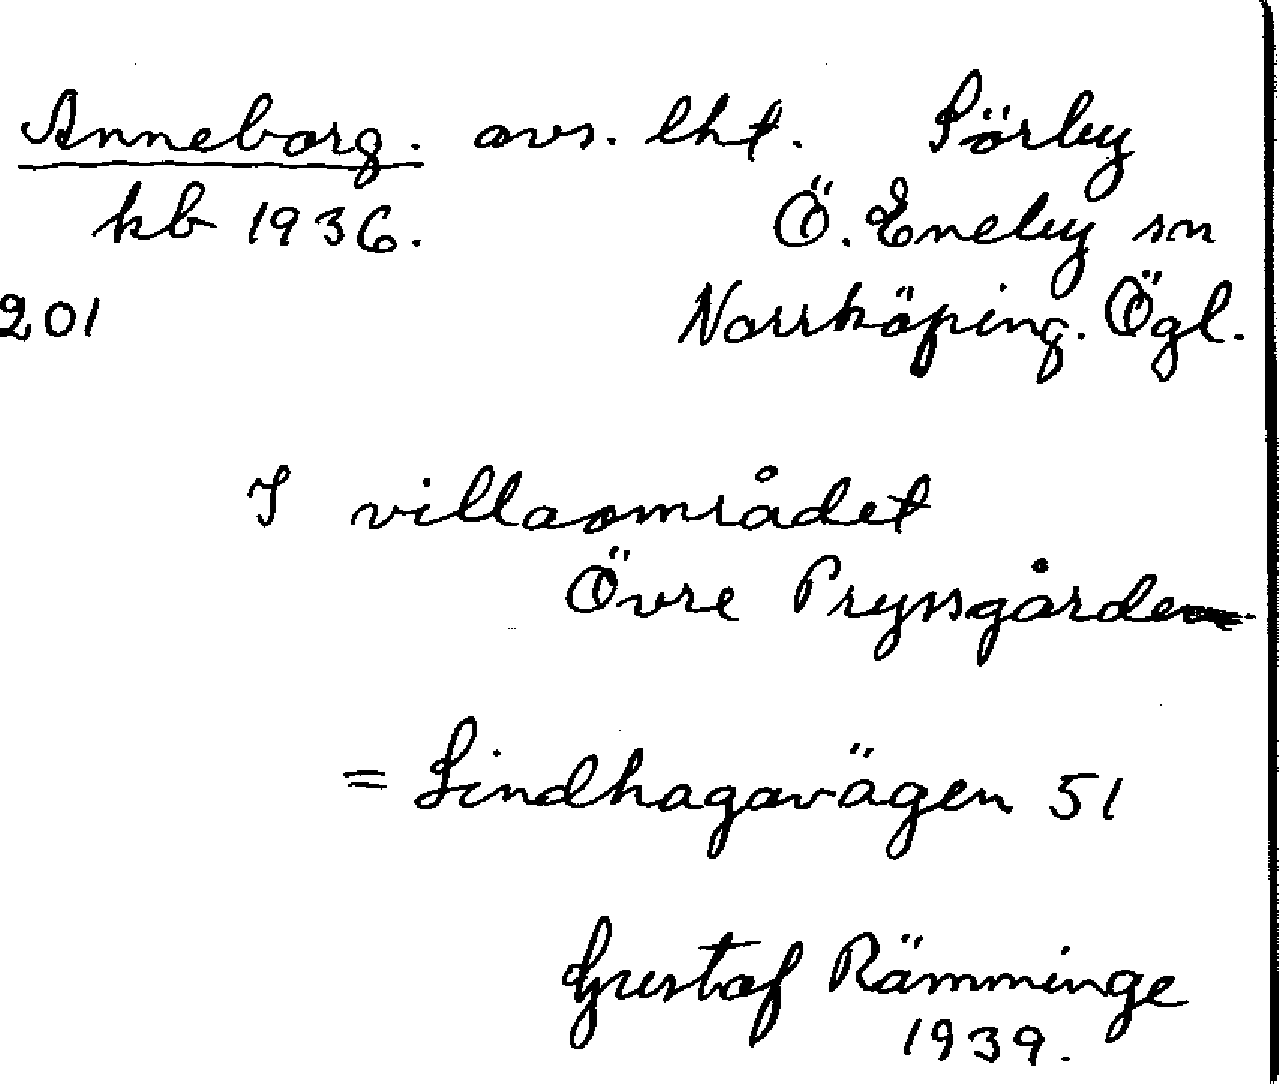 Anneborg. avs. lht. Sörby
kb 1936. Ö. Eneby sn
201 Norrköping. Ögl.
I villaområdet
Övre Pryssgården
= Lindhagavägen 51
Gustaf Rämminge
1939.